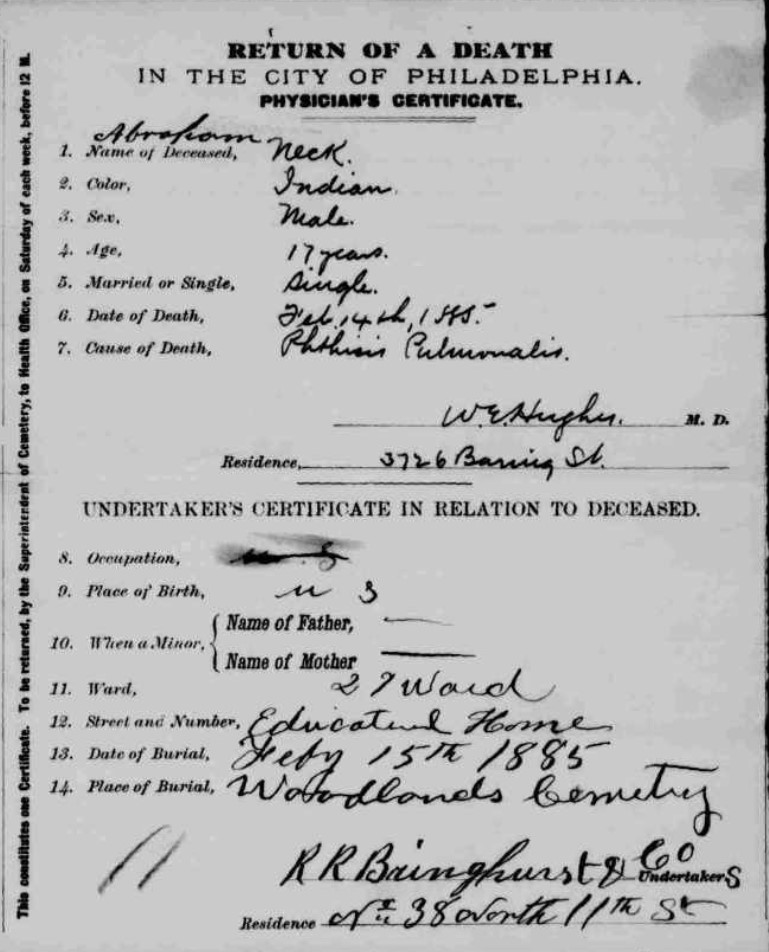 RETURN OF A DEATH
IN THE CITY OF PHILADELPHIA.
PHYSICIAN'S CERTIFICATE.
Abraham
1. Name of Deceased, Neck.
2. Color, Indian.
3. Sex, Male.
4. Age, 17 years.
5. Married or Single, Single.
6. Date of Death, Feb. 14th, 1885.
7. Cause of Death, Phthisis Pulmonalis.
W. E. Hughes. M. D.
Residence, 3726 Baring St.
UNDERTAKER'S CERTIFICATE IN RELATION TO DECEASED.
8. Occupation,
9. Place of Birth, U S
10. When a Minor, { Name of Father, —
Name of Mother —
11. Ward, 27 Ward
12. Street and Number, Educational Home
13. Date of Burial, Feby 15th 1885
14. Place of Burial, Woodlands Cemetry
R R Bringhurst & Co Undertakers
Residence No 38 North 11th St
11
This constitutes one Certificate. To be returned, by the Superintendent of Cemetery, to Health Office, on Saturday of each week, before 12 M.